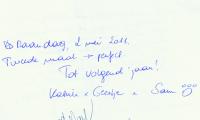 Maandag, 2 mei 2011.
Tweede maal → perfect
Tot volgend jaar!
Katrien + George + Sam